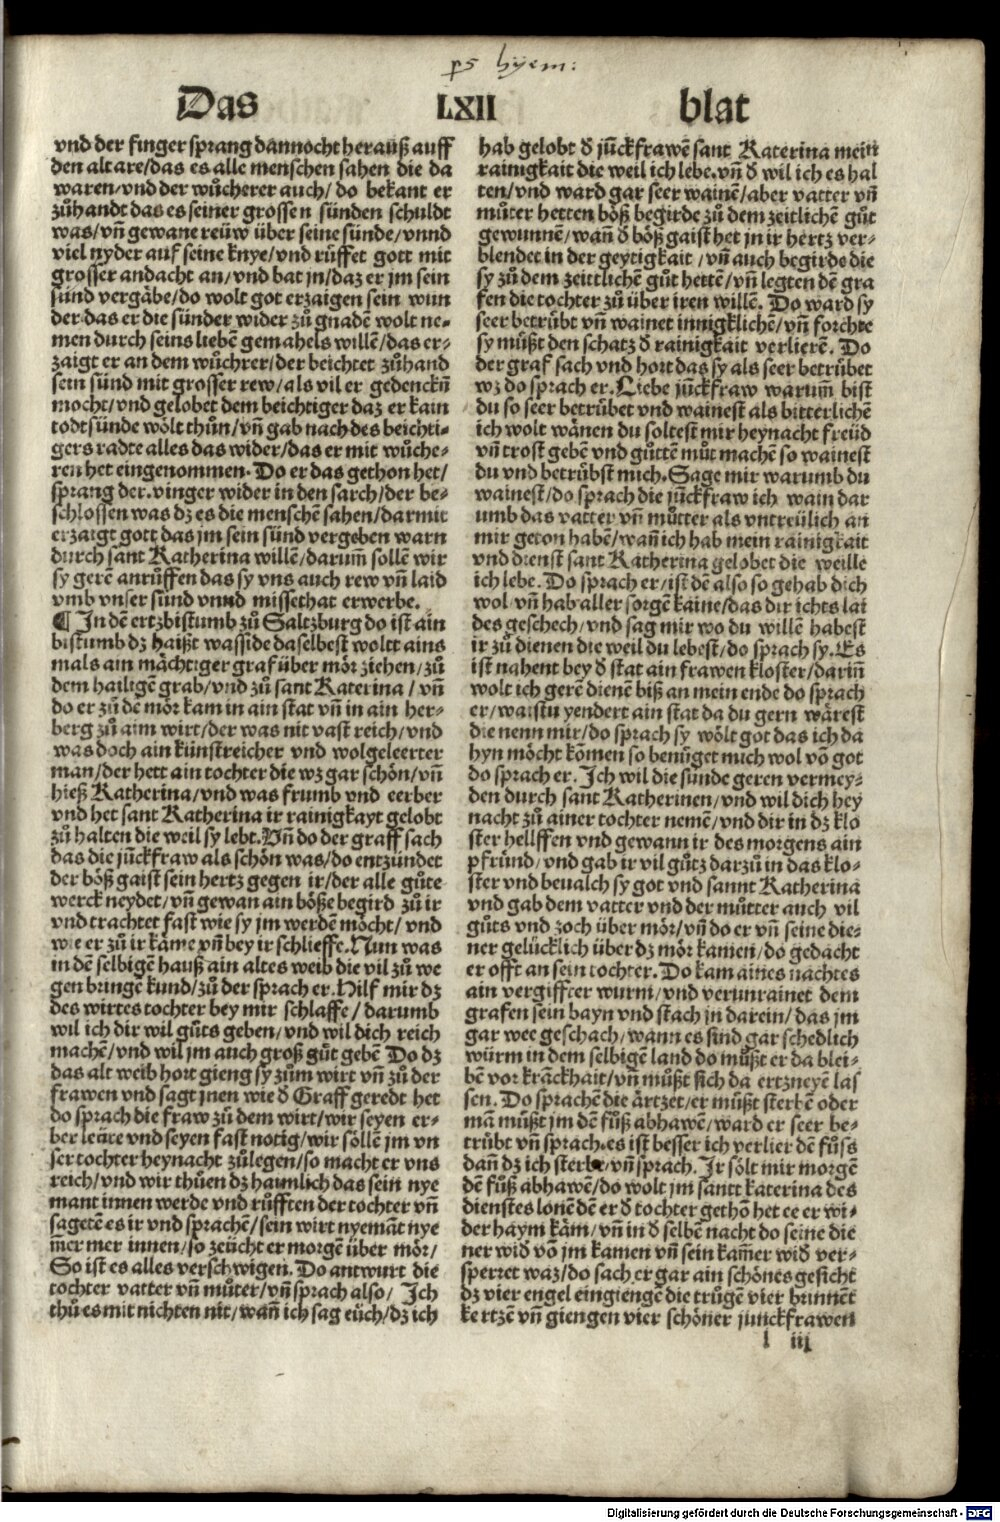 ps hyem:
Das LXII blat
vnd der finger sprang dannocht herauß auff
den altare/das es alle menschen sahen die da
waren/vnd der wůcherer auch/ do bekant er
zůhandt das es seiner grossen sünden schuldt
was/vn̄ gewane reüw über seine sünde/vnnd
viel nyder auf seine knye/vnd rüffet gott mit
grosser andacht an/vnd bat jn/daz er jm sein
sünd vergäbe/do wolt got erzaigen sein wun
der das er die sünder wider zů gnadē wolt ne-
men durch seins liebē gemahels willē/das er-
zaigt er an dem wůchrer/der beichtet zůhand
sein sünd mit grosser rew/als vil er gedenckn̄
mocht/vnd gelobet dem beichtiger daz er kain
todtsünde wölt thůn/vn̄ gab nach des beichti-
gers radte alles das wider/das er mit wůche-
ren het eingenommen. Do er das gethon het/
sprang der vinger wider in den sarch/der be-
schlossen was dz es die menschē sahen/darmit
erzaigt gott das jm sein sünd vergeben warn
durch sant Katherina willē/darum̄ sollē wir
sy gerē anrüffen das sy vns auch rew vn̄ laid
vmb vnser sünd vnnd missethat erwerbe.
¶ In dē ertzbistumb zů Saltzburg do ist ain
bistumb dz haißt wasside daselbest woltt ains
mals ain mächtiger graf über mör ziehen/zů
dem hailigē grab/vnd zů sant Katerina / vn̄
do er zů dē mör kam in ain stat vn̄ in ain her-
berg zů aim wirt/der was nit vast reich/vnd
was doch ain künstreicher vnd wolgeleerter
man/der hett ain tochter die wz gar schön/vn̄
hieß Katherina/vnd was frumb vnd eerber
vnd het sant Katherina ir rainigkayt gelobt
zů halten die weil sy lebt. Vn̄ do der graff sach
das die jūckfraw als schön was/do entzündet
der böß gaist sein hertz gegen ir/der alle gůte
werck neydet/vn̄ gewan ain böße begird zů ir
vnd trachtet fast wie sy jm werdē möcht/ vnd
wie er zů ir käme vn̄ bey ir schlieffe. Nun was
in dē selbigē hauß ain altes weib die vil zů we
gen bringē kund/zů der sprach er. Hilf mir dz
des wirtes tochter bey mir schlaffe/ darumb
wil ich dir wil gůts geben/vnd wil dich reich
machē/vnd wil jm auch groß gůt gebē Do dz
das alt weib hort gieng sy zům wirt vn̄ zů der
frawen vnd sagt jnen wie d̄ Graff geredt het
do sprach die fraw zů dem wirt/wir seyen er-
ber leüte vnd seyen fast notig/wir söllē jm vn
ser tochter heynacht zůlegen/so macht er vns
reich/vnd wir thůen dz haimlich das sein nye
mant innen werde vnd rüfften der tochter vn̄
sagetē es ir vnd sprachē/sein wirt nyemāt nye
m̄er mer innen/so zeücht er morgē über mör/
So ist es alles verschwigen. Do antwurt die
tochter vatter vn̄ můter/vn̄ sprach also/ Ich
thů es mit nichten nit/wan̄ ich sag eüch/dz ich
hab gelobt d̄ jūckfrawē sant Katerina mein
rainigkait die weil ich lebe. vn̄ d̄ wil ich es hal
ten/vnd ward gar seer wainē/aber vatter vn̄
můter hetten böß begirde zů dem zeitlichē gůt
gewunnē/wan̄ d̄ böß gaist het jn ir hertz ver-
blendet in der geytigkait /vn̄ auch begirde die
sy zů dem zeittlichē gůt hettē/vn̄ legten dē gra
fen die tochter zů über iren willē. Do ward sy
seer betrübt vn̄ wainet innigklichē/vn̄ forchte
sy můßt den schatz d̄ rainigkait verlierē. Do
der graf sach vnd hort das sy als seer betrübet
wz do sprach er. Liebe jūckfraw warum̄ bist
du so seer betrübet vnd wainest als bitterlichē
ich wolt wänen du soltest mir heynacht freüd
vn̄ trost gebē vnd gůttē můt machē so wainest
du vnd betrübst mich. Sage mir warumb du
wainest/do sprach die jūckfraw ich wain dar
umb das vatter vn̄ můtter als vntreülich an
mir geton habē/wan̄ ich hab mein rainigkait
vnd dienst sant Katherina gelobet die weille
ich lebe. Do sprach er/ist dē also so gehab dich
wol vn̄ hab aller sorgē kaine/das dir ichts lai
des geschech/vnd sag mir wo du willē habest
ir zů dienen die weil du lebest/do sprach sy. Es
ist nahent bey d̄ stat ain frawen kloster/darin̄
wolt ich gerē dienē biß an mein ende do sprach
er/waistu yendert ain stat da du gern wärest
die nenn mir/do sprach sy wölt got das ich da
hyn möcht kōmen so benüget mich wol vō got
do sprach er. Ich wil die sünde geren vermey-
den durch sant Katherinen/vnd wil dich hey
nacht zů ainer tochter nemē/vnd dir in dz klo
ster hellffen vnd gewann ir des morgens ain
pfründ/vnd gab ir vil gůtz darzů in das klo-
ster vnd beualch sy got vnd sannt Katherina
vnd gab dem vatter vnd der můtter auch vil
gůts vnd zoch über mör/vn̄ do er vn̄ seine die-
ner gelücklich über dz mör kamen/do gedacht
er offt an sein tochter. Do kam aines nachtes
ain vergiffter wurm/vnd verunrainet dem
grafen sein bayn vnd stach jn darein/das jm
gar wee geschach/wann es sind gar schedlich
würm in dem selbigē land do můßt er da blei-
bē vor kränckhait/vn̄ můßt sich da ertzneyē las
sen. Do sprachē die ärtzet/er můßt sterbē oder
mā můßt jm dē fůß abhawē/ward er seer be-
trübt vn̄ sprach. es ist besser ich verlier dē fůss
dan̄ dz ich sterbe/vn̄ sprach. Ir sölt mir morgē
dē fůß abhawē/do wolt jm santt katerina des
dienstes lonē dē er d̄ tochter gethō het ee er wi-
der haym käm/vn̄ in d̄ selbē nacht do seine die
ner wid̄ vō jm kamen vn̄ sein kam̄er wid̄ ver-
sperret waz/do sach er gar ain schönes gesicht
dz vier engel eingiengē die trůgē vier brinnēt
kertzē vn̄ giengen vier schöner junckfrawen
l iij
Digitalisierung gefördert durch die Deutsche Forschungsgemeinschaft - DFG